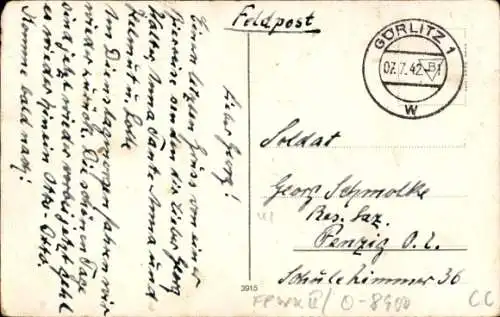 Feldpost
GÖRLITZ 1
07.7.42
W
Lieber Georg!
Einen letzten Gruss von einer
Bierreise senden dir lieber Georg
Walter, Anna Tante Anna und
Helmut u. Lotte
Am Dienstag morgen fahren wir
wieder zurück. Die schönen Tage
sind jetzt wieder vorbei jetzt geht
es wieder hinein Otto-Otto.
Komme bald nach!
Soldat
Georg Schmolke
Res. Laz.
Penzig O. L.
Schulzimmer 36
3915
O-8900
CC